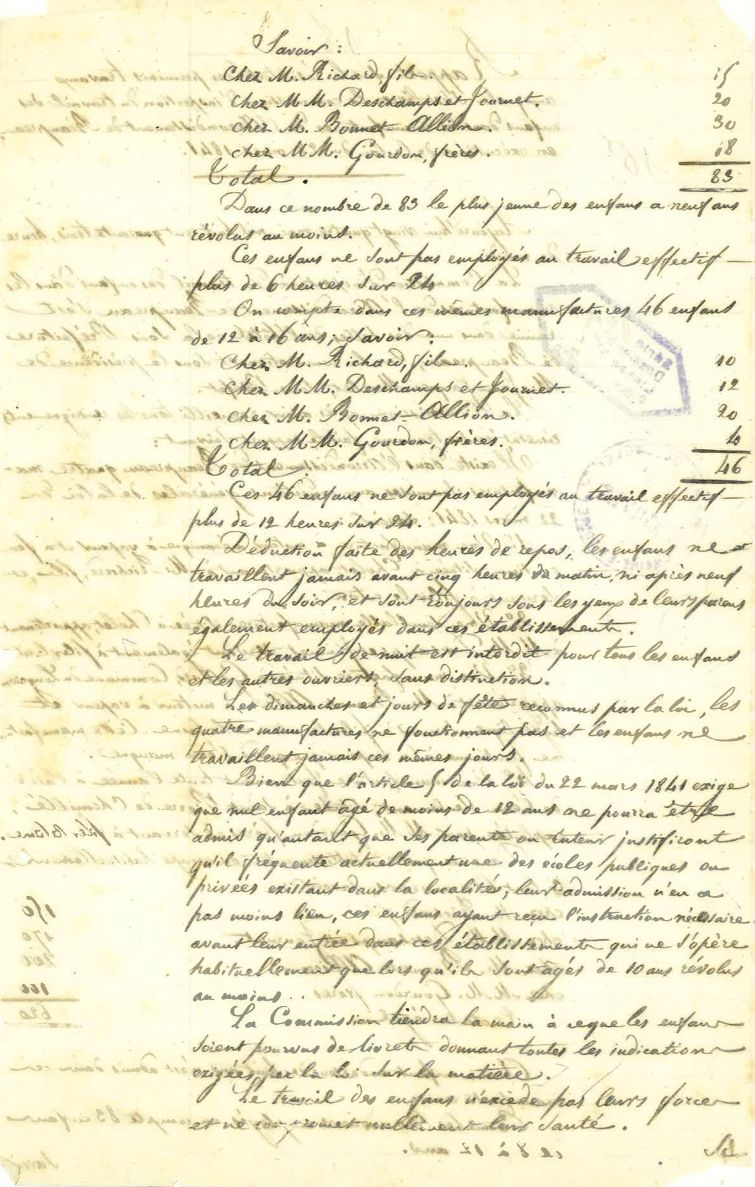 Savoir :
Chez M. Richard, fils. 15
chez M M. Deschamps et Journet. 20
chez M. Bonnet-Allion. 30
chez M M. Gourdon, frères. 18
Total. 83
Dans ce nombre de 83 le plus jeune des enfans a neuf ans
révolus au moins.
Ces enfans ne sont pas employés au travail effectif
plus de 6 heures sur 24
On compte dans ces mêmes manufactures 46 enfans
de 12 à 16 ans; Savoir :
Chez M. Richard, fils. 10
chez M M. Deschamps et Journet. 12
chez M. Bonnet-Allion. 20
chez M M. Gourdon, frères. 4
Total. 46
Ces 46 enfans ne sont pas employés au travail effectif
plus de 12 heures sur 24.
Déduction faite des heures de repos, les enfans ne
travaillent jamais avant cinq heures du matin, ni après neuf
heures du soir; et sont toujours sous les yeux de leurs parens
également employés dans ces établissements.
Le travail de nuit est interdit pour tous les enfans
et les autres ouvriers, sans distinction.
Les dimanches et jours de fête reconnus par la loi, les
quatre manufactures ne fonctionnent pas et les enfans ne
travaillent jamais ces mêmes jours.
Bien que l'article 5 de la loi du 22 mars 1841 exige
que nul enfant âgé de moins de 12 ans ne pourra être
admis qu'autant que ses parents ou tuteur justifiront
qu'il fréquente actuellement une des écoles publiques ou
privées existant dans la localité, leur admission n'en a
pas moins lieu, ces enfans ayant reçu l'instruction nécessaire
avant leur entrée dans ces établissements qui ne s'opère
habituellement que lors qu'ils sont âgés de 10 ans révolus
au moins.
La Commission tiendra la main à ce que les enfans
soient pourvus de livrets donnant toutes les indications
exigées par la loi sur la matière.
Le travail des enfans n'excède pas leurs forces
et ne compromet nullement leur santé.